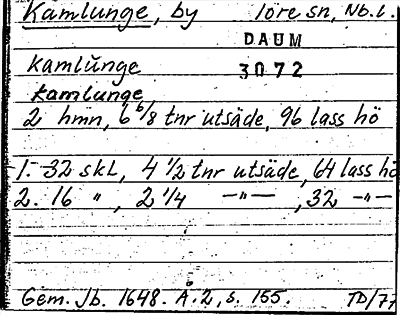 Kamlunge, by Töre sn, Nb.l.
DAUM
3072
kamlŭnge
kamlunge
2 hmn, 6 6/8 tnr utsäde, 96 lass hö
1. 32 skl, 4 1/2 tnr utsäde, 64 lass hö
2. 16 " , 2 1/4 —"— , 32 —"—
Gem. Jb. 1648. A. 2, s. 155. TD/77